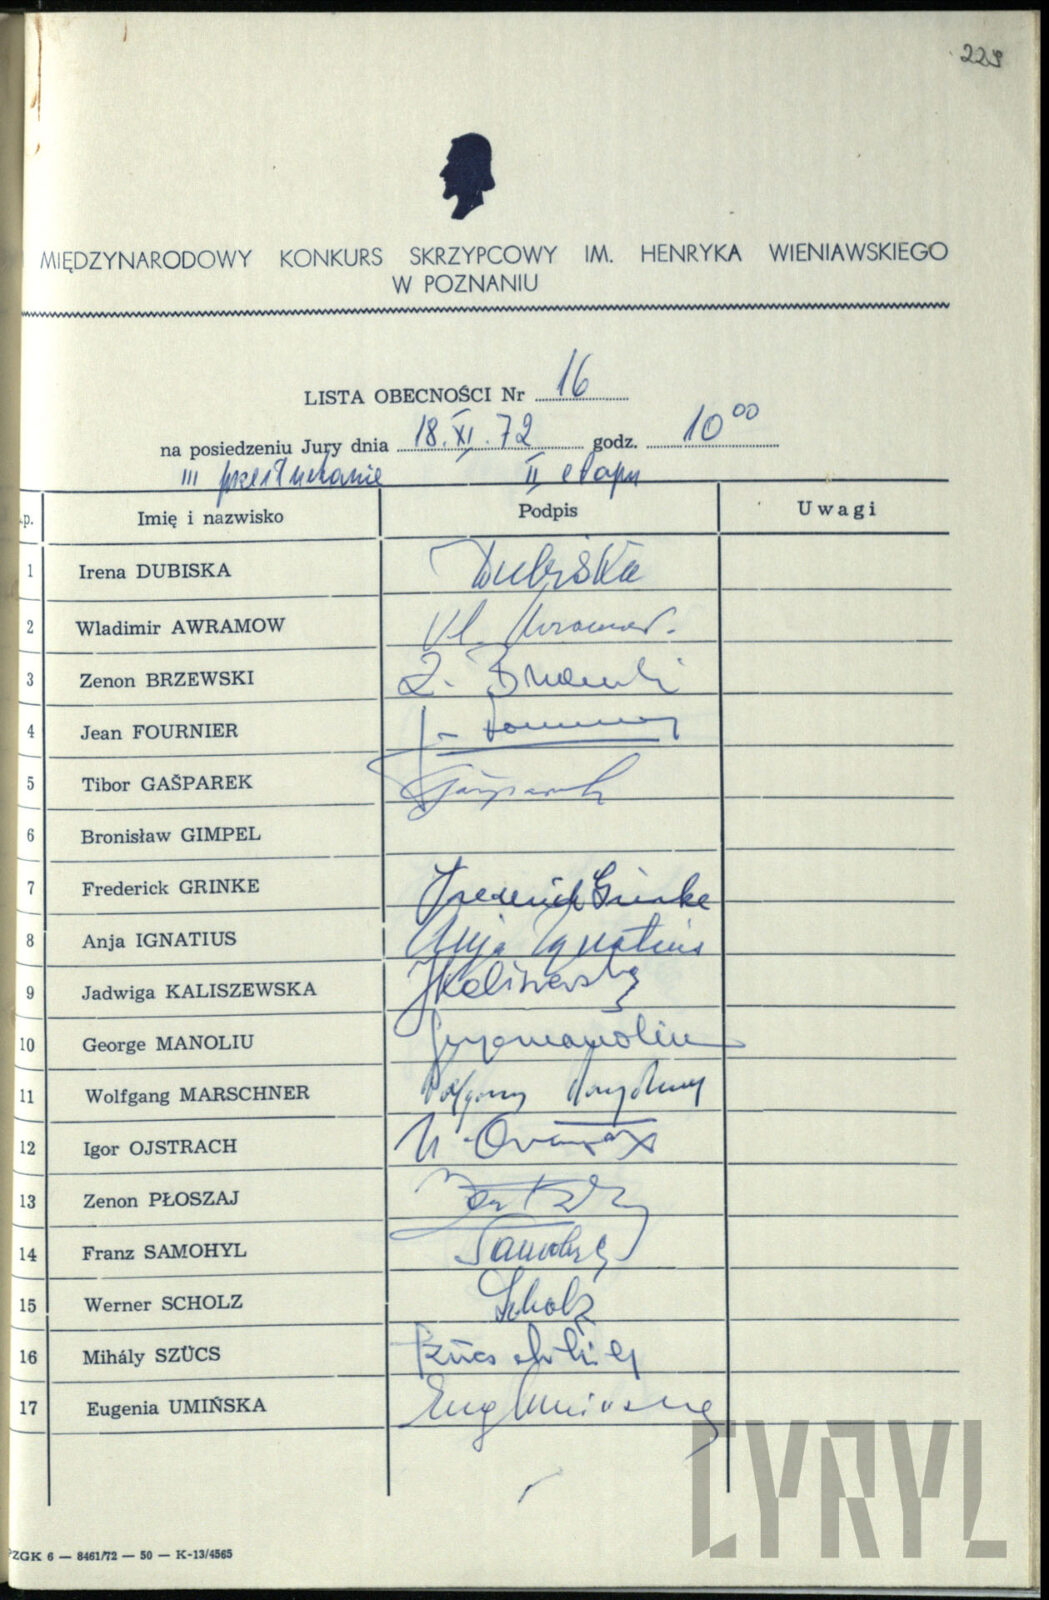 229
MIĘDZYNARODOWY KONKURS SKRZYPCOWY IM. HENRYKA WIENIAWSKIEGO
W POZNANIU
LISTA OBECNOŚCI Nr 16
na posiedzeniu Jury dnia 18.XI.72 godz. 10⁰⁰
III przesłuchanie II etapu
.p. Imię i nazwisko Podpis Uwagi
1 Irena DUBISKA Dubiska
2 Wladimir AWRAMOW Vl.
3 Zenon BRZEWSKI Z. Brzewski
4 Jean FOURNIER J. Fournier
5 Tibor GAŠPAREK Gašparek
6 Bronisław GIMPEL
7 Frederick GRINKE Frederick Grinke
8 Anja IGNATIUS Anja Ignatius
9 Jadwiga KALISZEWSKA JKaliszewska
10 George MANOLIU Manoliu
11 Wolfgang MARSCHNER Wolfgang Marschner
12 Igor OJSTRACH
13 Zenon PŁOSZAJ
14 Franz SAMOHYL Samohyl
15 Werner SCHOLZ Scholz
16 Mihály SZÜCS Szücs Mihály
17 Eugenia UMIŃSKA Eug Umińska
PZGK 6 — 8461/72 — 50 — K-13/4565
CYRYL